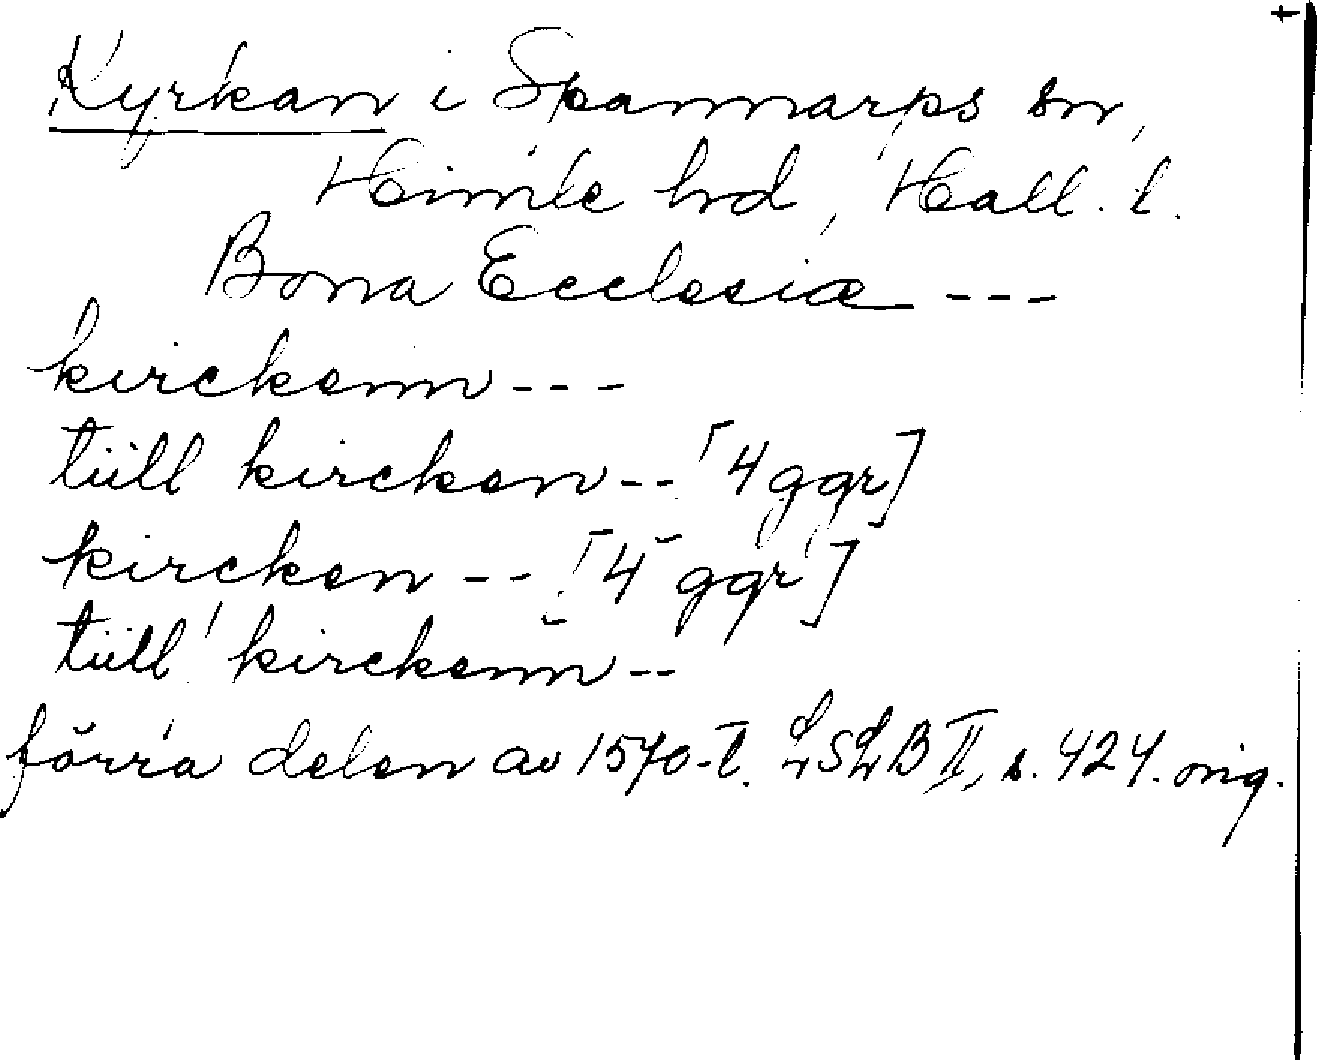 Kyrkan i Spannarps sn,
Himle hd, Hall. l.
Bona Ecclesiæ ---
kirckenn ---
tiill kircken -- [4 ggr]
kircken -- [4 ggr]
tiill kirckenn --
förra delen av 1570-t. LSLB II, s. 424. orig.